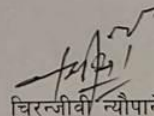 चिरन्जीवी न्यौपाने